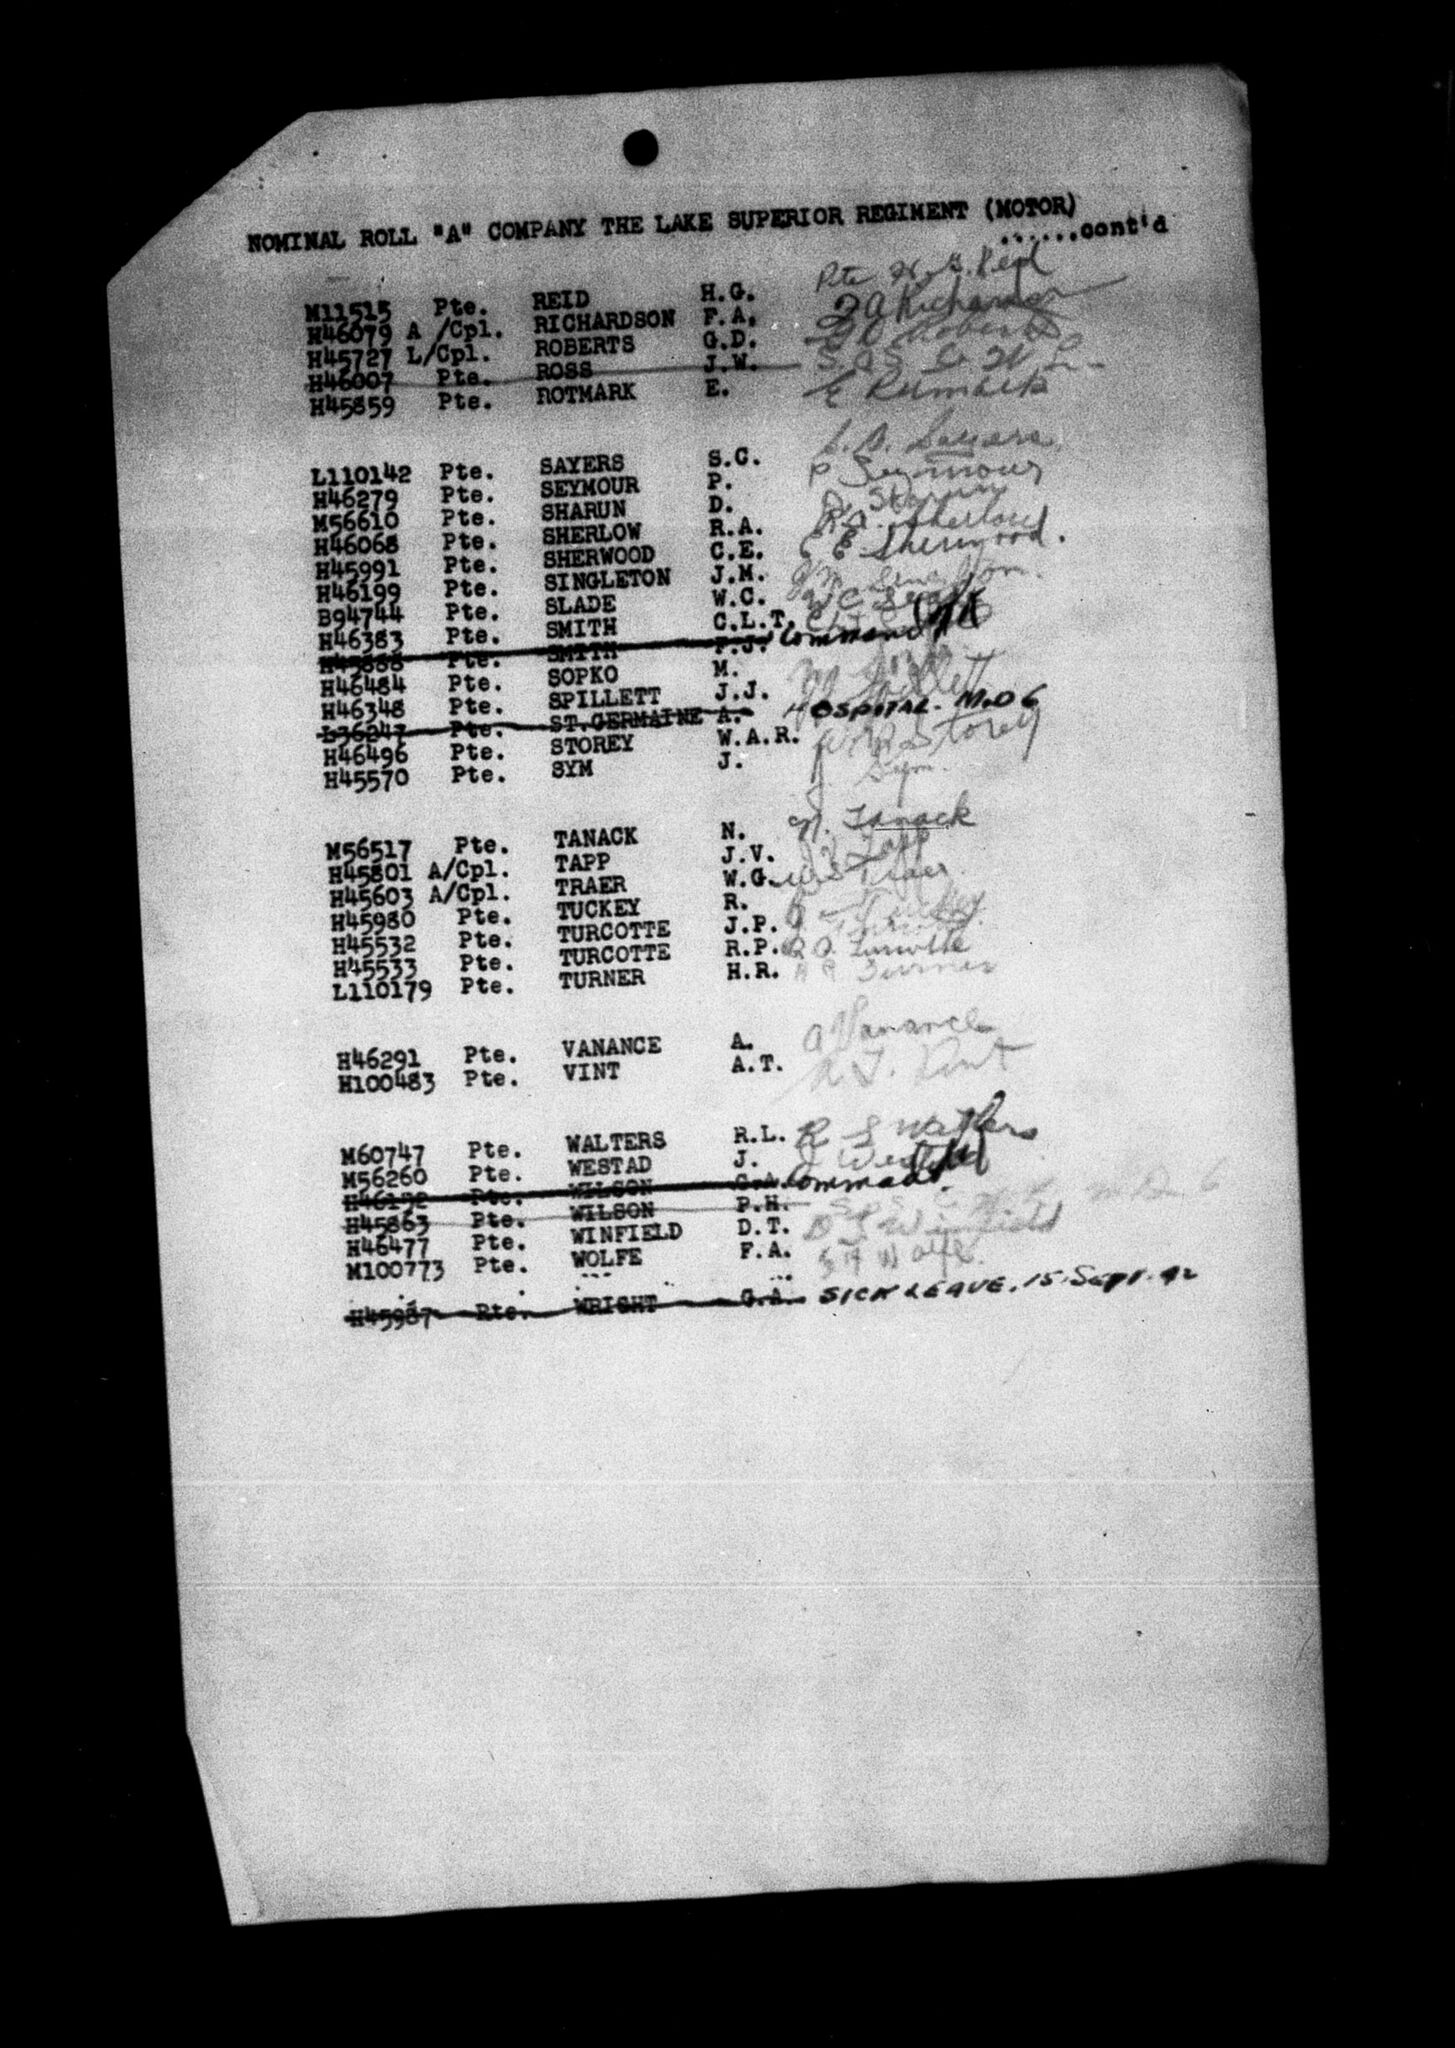 NOMINAL ROLL "A" COMPANY THE LAKE SUPERIOR REGIMENT (MOTOR)
......cont'd
M11515 Pte. REID H.G. Pte H.G. Reid
H46079 A /Cpl. RICHARDSON F.A. F A Richardson
H45727 L/Cpl. ROBERTS G.D. G D Roberts
H46007 Pte. ROSS J.W.
H45859 Pte. ROTMARK E. E Rotmark
L110142 Pte. SAYERS S.C. Sayers
H46279 Pte. SEYMOUR P. P Seymour
M56610 Pte. SHARUN D. D. Sharun
H46068 Pte. SHERLOW R.A. R.A. Sherlow
H45991 Pte. SHERWOOD C.E. C E Sherwood.
H46199 Pte. SINGLETON J.M. J M Singleton.
B94744 Pte. SLADE W.C. W C Slade
H46383 Pte. SMITH C.L.T.
H45888 Pte. SMITH F.J. Command
H46484 Pte. SOPKO M. M
H46348 Pte. SPILLETT J.J. Spillett
L36247 Pte. ST.GERMAINE A. HOSPITAL. M.D 6
H46496 Pte. STOREY W.A.R. W A R Storey
H45570 Pte. SYM J. J. Sym.
M56517 Pte. TANACK N. N. Tanack
H45801 A/Cpl. TAPP J.V. J V Tapp
H45603 A/Cpl. TRAER W.G. W G Traer
H45980 Pte. TUCKEY R. R Tuckey
H45532 Pte. TURCOTTE J.P.
H45533 Pte. TURCOTTE R.P. R P. Turcotte
L110179 Pte. TURNER H.R. H R Turner
H46291 Pte. VANANCE A. A Vanance
H100483 Pte. VINT A.T. A T. Vint
M60747 Pte. WALTERS R.L. R L Walters
M56260 Pte. WESTAD J. J Westad
H46132 Pte. WILSON C.A. Command
H45863 Pte. WILSON P.H. M D 6
H46477 Pte. WINFIELD D.T. D T Winfield
M100773 Pte. WOLFE F.A. F A Wolfe.
H45987 Pte. WRIGHT G.A. SICK LEAVE. 15. Sept. 42